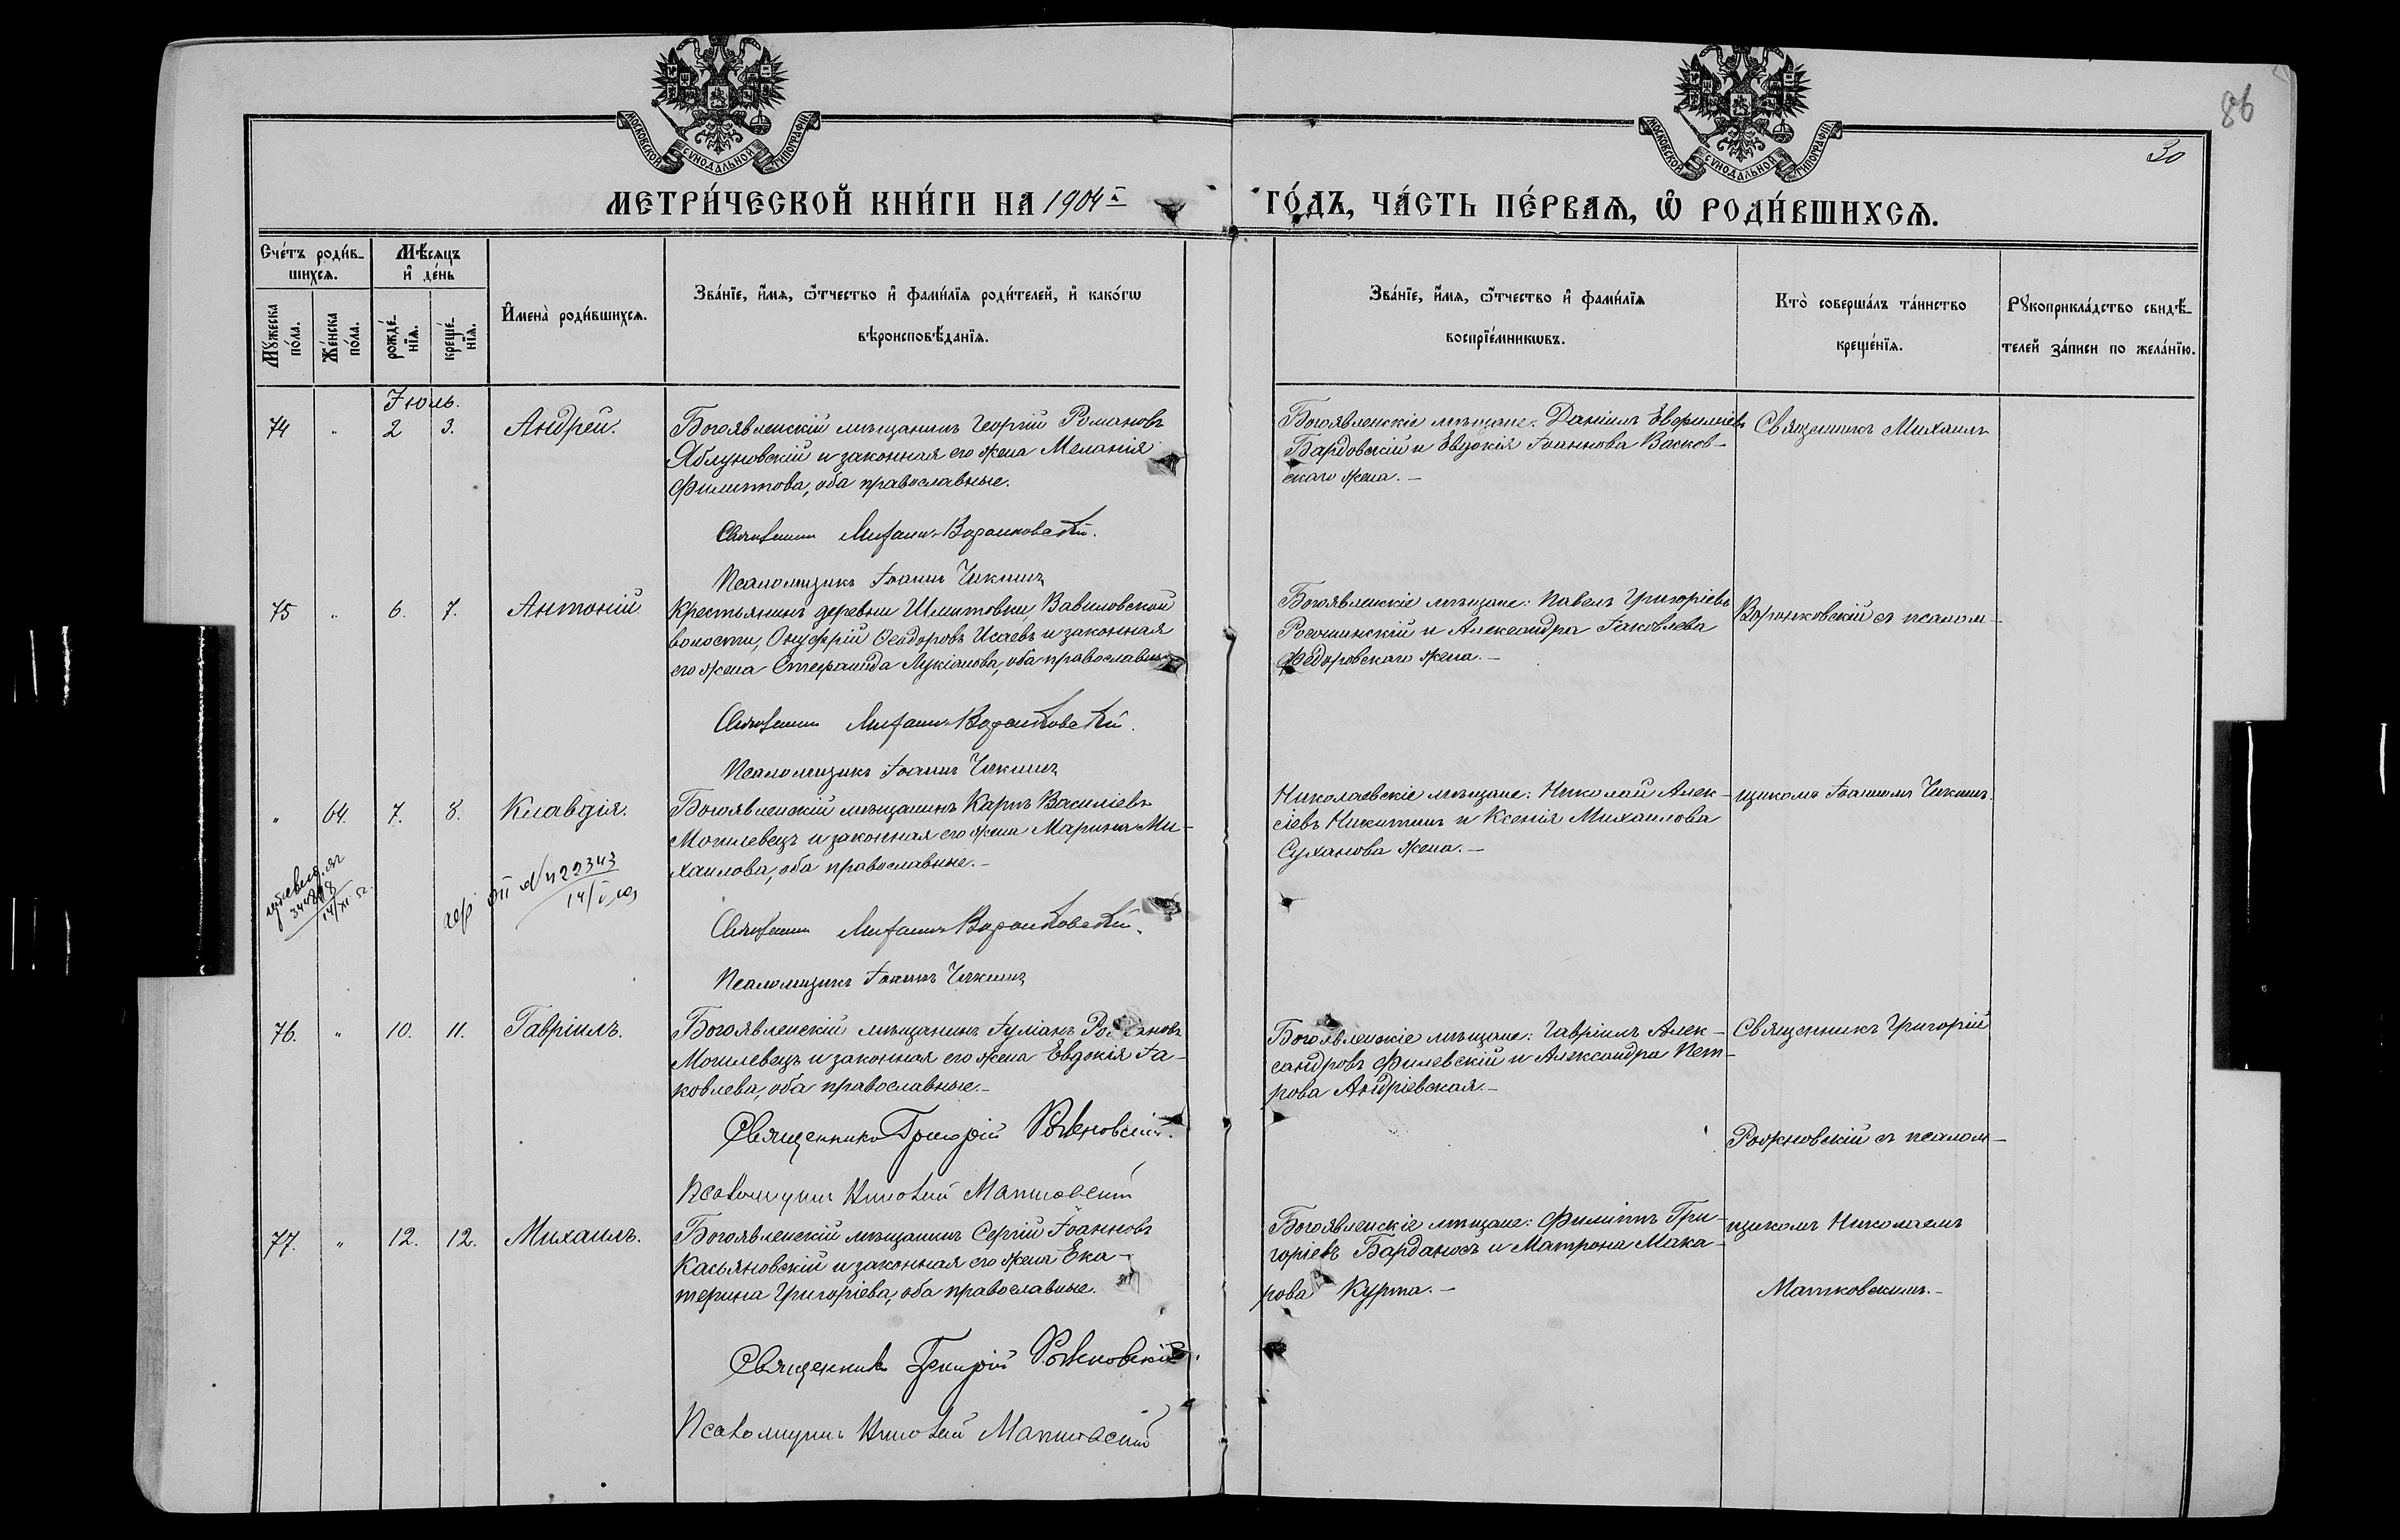 86
30
МОСКОВСКОЙ СУНОДАЛЬНОЙ ТИПОГРАФІИ
МОСКОВСКОЙ СУНОДАЛЬНОЙ ТИПОГРАФІИ
МЕТРИ́ЧЕСКОЙ КНИ́ГИ НА 1904 й
ГО́ДЪ, ЧА́СТЬ ПЕ́РВАѦ, Ѽ РОДИ́ВШИХСѦ.
Сче́тъ роди́в-
шихсѧ.
Мꙋ́жеска по́ла.
Же́нска по́ла.
Мѣ́сѧцъ
и҆ де́нь
рожде́-нїѧ.
креще́-нїѧ.
И҆мена̀ роди́вшихсѧ.
Зва́нїе, и҆́мѧ, ѻ҆́тчество и҆ фами́лїѧ роди́телей, и҆ како́гѡ
вѣроисповѣ́данїѧ.
Зва́нїе, и҆́мѧ, ѻ҆́тчество и҆ фами́лїѧ
воспрїе́мникѡвъ.
Кто̀ соверша́лъ та́инство
креще́нїѧ.
Рꙋкоприкла́дство свидѣ́-
телей за́писи по жела́нїю.
Іюль.
74 " 2 3. Андрей.
Богоявленскій мѣщанинъ Георгій Романовъ
Яблуновскій и законная его жена Меланія
Филиппова, оба православные.
Священникъ Михаилъ Воронковскій.
Псаломщикъ Іоаннъ Чикинъ
Богоявленскіе мѣщане: Даніилъ Евфиміевъ
Бардовскій и Евдокія Іоаннова Васков-
скаго жена. —
Священникъ Михаилъ
75 " 6. 7. Антоній
Крестьянинъ деревни Шмитовки, Вавиловской
волости, Онуфрій Ѳеодоровъ Исаевъ и законная
его жена Стефанида Лукіанова, оба православные
Священникъ Михаилъ Воронковскій.
Псаломщикъ Іоаннъ Чикинъ
Богоявленскіе мѣщане: Павелъ Григоріевъ
и Александра Іаковлева
Федоровскаго жена. —
Воронковскій съ псалом-
" 64. 7. 8. Клавдія.
Богоявленскій мѣщанинъ Карпъ Василіевъ
Могилевецъ и законная его жена Марина Ми-
хаилова, оба православные. —
Священникъ Михаилъ Воронковскій.
Псаломщикъ Іоаннъ Чикинъ
Николаевскіе мѣщане: Николай Алек-
сіевъ Никитинъ и Ксенія Михаилова
Суханова жена. —
щикомъ Іоанномъ Чикинъ.
14/XI
№ 22343
76. " 10. 11. Гавріилъ.
Богоявленскій мѣщанинъ Іуліанъ
Могилевецъ и законная его жена Евдокія Іа-
ковлева, оба православные. —
Священникъ Григорій Рожновскій.
Псаломщикъ Николай Матковскій
Богоявленскіе мѣщане: Гавріилъ Алек-
сандровъ Филевскій и Александра Пет-
рова Андріевская. —
Священникъ Григорій
Рожновскій съ псалом-
77. " 12. 12. Михаилъ.
Богоявленскій мѣщанинъ Сергій Іоанновъ
Касьяновскій и законная его жена Ека-
терина Григоріева, оба православные.
Священникъ Григорій Рожновскій.
Псаломщикъ Николай Матковскій
Богоявленскіе мѣщане: Филиппъ Гри-
горіевъ Барданосъ и Матрона Мака-
рова Курта. —
щикомъ Николаемъ
Матковскимъ. —